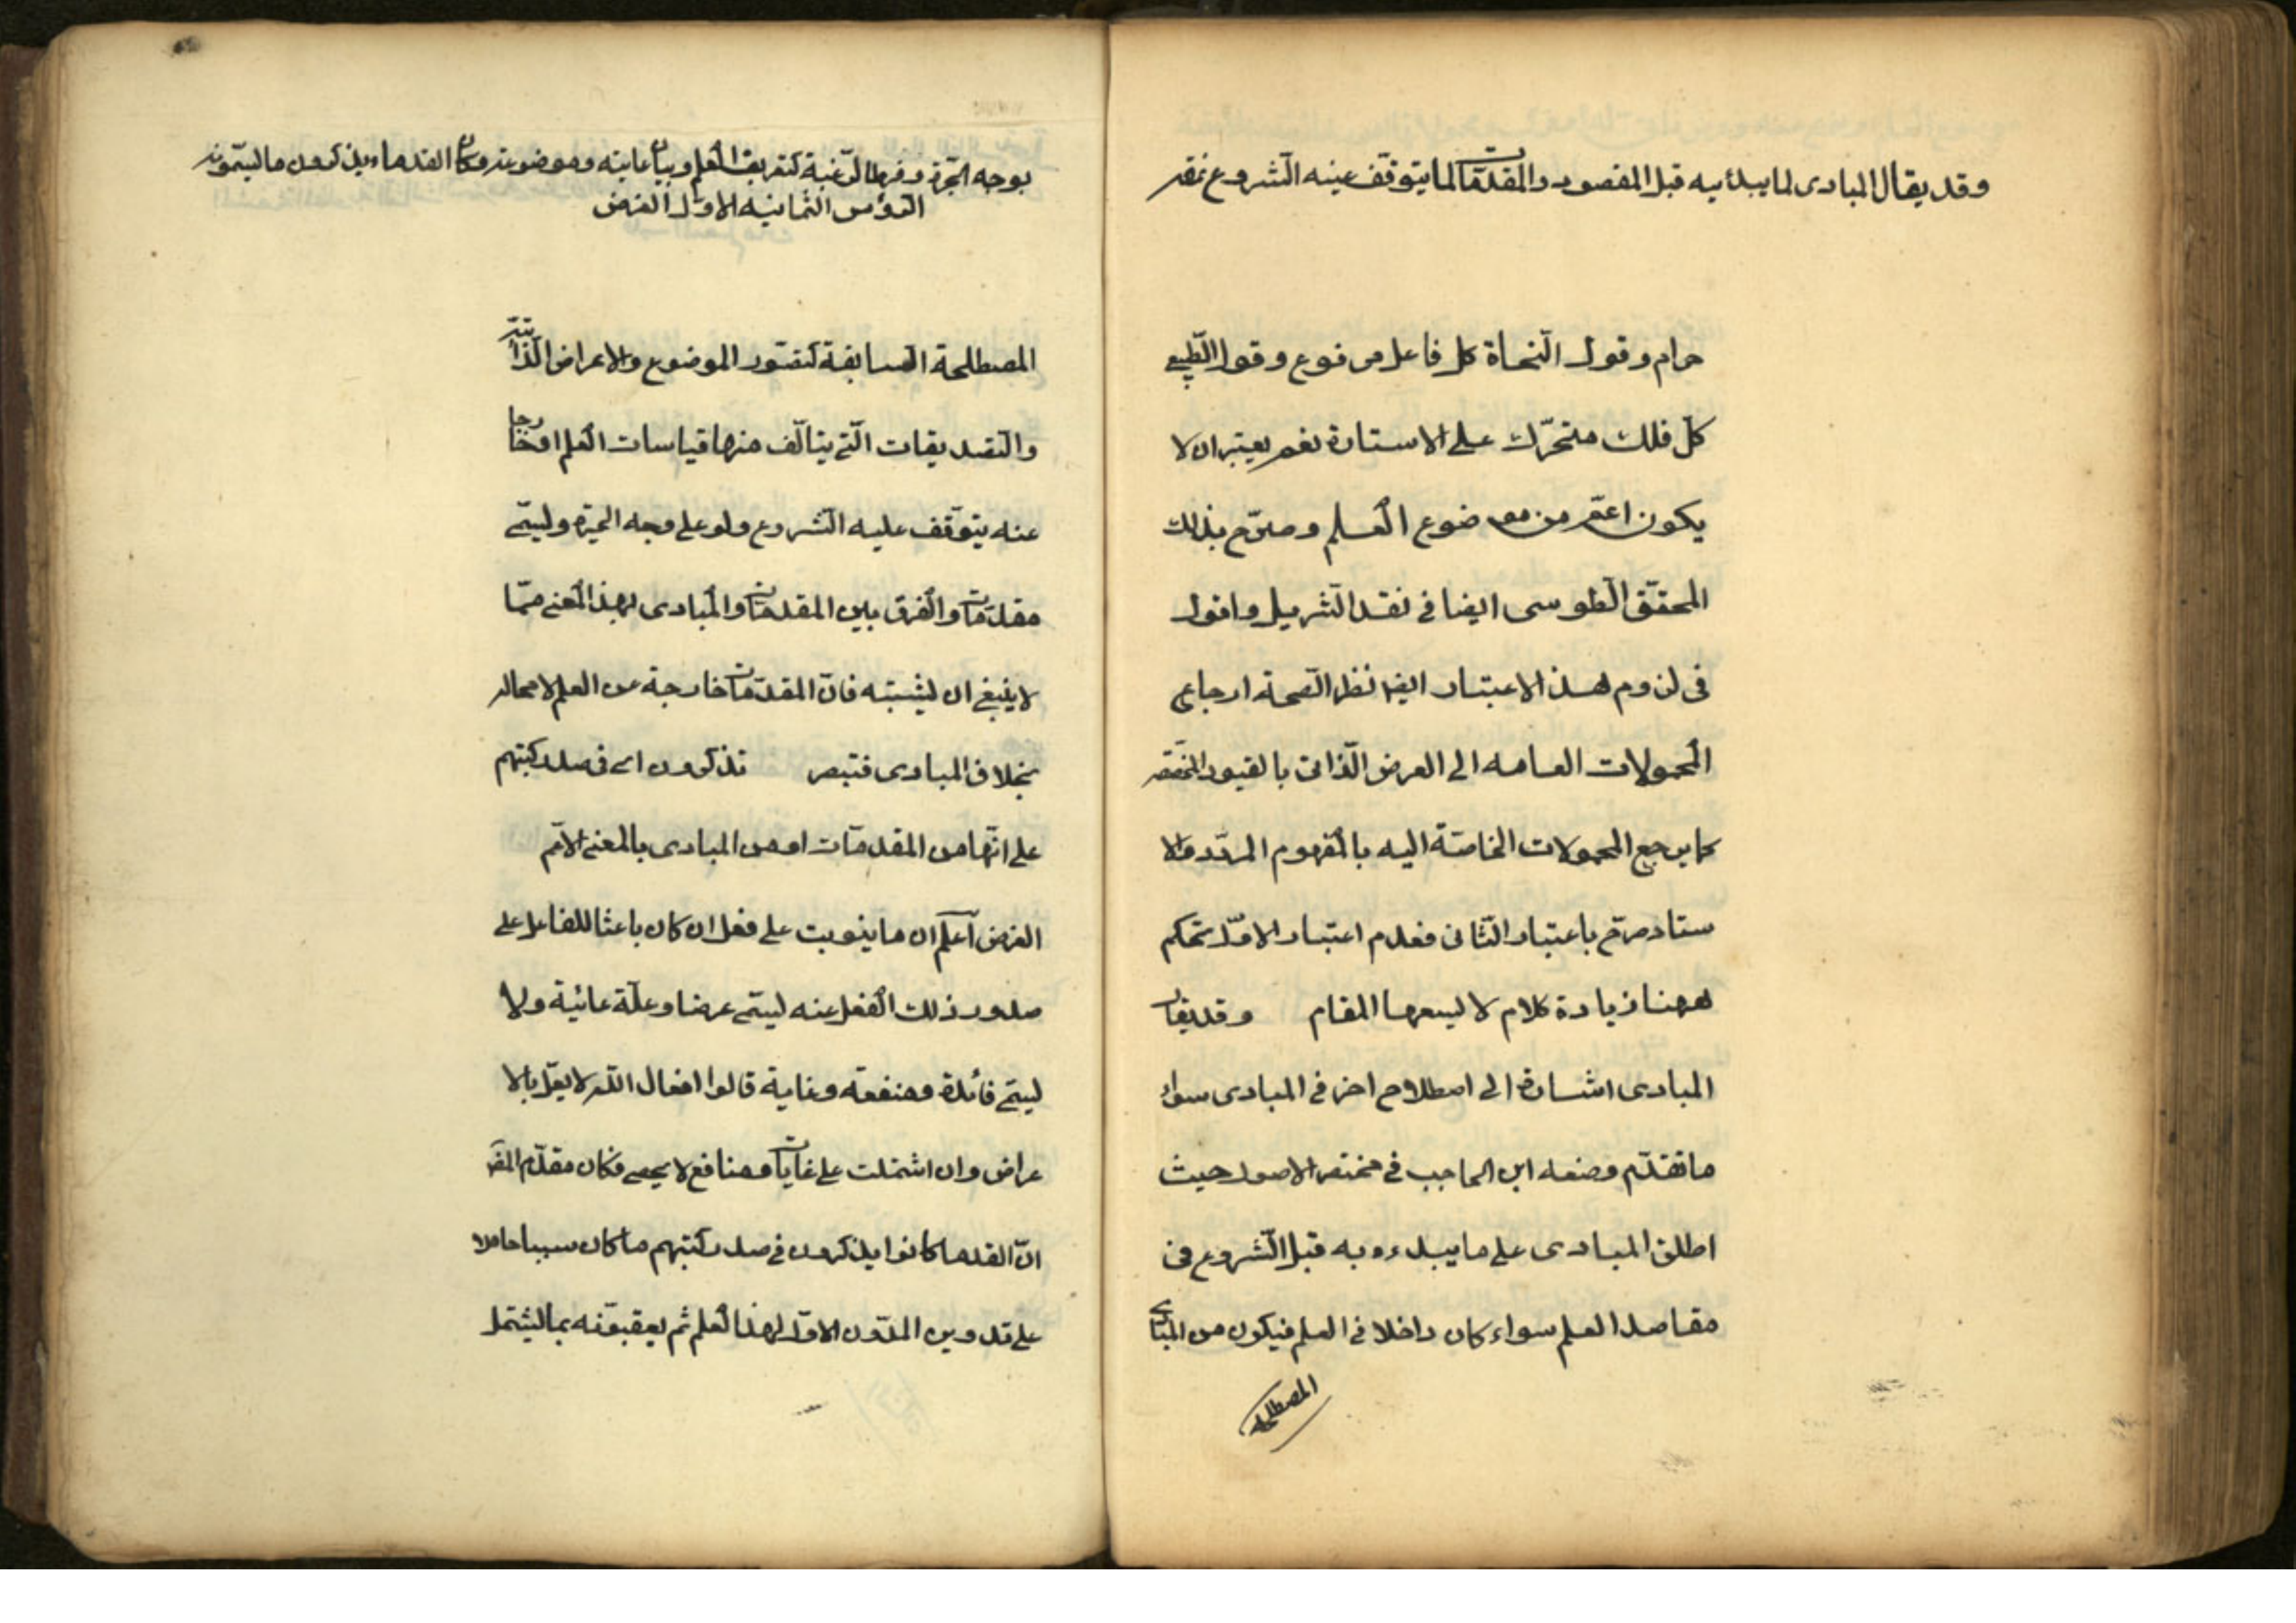 وقد يقال المبادى لما يبدأ به قبل المقصود والمقدمات لما يتوقف عينه الشروع
حرام وقول النحاة كل فاعل مرفوع وقول الطبيعى
كل فلك متحرك على الاستدارة نعم يعتبر ان لا
يكون اعم من موضوع العلم وصرح بذلك
المحقق الطوسى ايضا فى نقد التنزيل واقول
فى لزوم هذا الاعتبار ايضا نظر لصحة ارجاع
المحمولات العامه الى العرض الذاتى بالقيود المخصصه
كما يرجع المحمولات الخاصة اليه بالمفهوم المردد والا
ستاد صرح باعتبار الثانى فعدم اعتبار الاول تحكم
ههنا زيادة كلام لا يسعها المقام وقد يقال
المبادى اشارة الى اصطلاح اخر فى المبادى سواء
ما تقدم وضعه ابن الحاجب فى مختصر الاصول حيث
اطلق المبادى على ما يبدء به قبل الشروع فى
مقاصد العلم سواء كان داخلا فى العلم فيكون من المبادى
المصطلحة
بوجه الخبرة وفرط الرغبة كتعريف العلم وبيان غايته وموضوعه وكان القدماء يذكرون ما يسمونه
الرؤس الثمانيه الاول الغرض
المصطلحة السابقة كتصور الموضوع والاعراض الذاتية
والتصديقات التى يتألف منها قياسات العلم او خارجا
عنه يتوقف عليه الشروع ولو على وجه الخبرة وليسمى
مقدمات والفرق بين المقدمات والمبادى بهذا المعنى مما
لا ينبغى ان يشتبه فان المقدمات خارجة عن العلم لا محاله
بخلاف المبادى فتبصر تذكرون اى فى صدر كتبهم
على انها من المقدمات او من المبادى بالمعنى الاعم
الغرض اعلم ان ما يترتب على فعل ان كان باعثا للفاعل على
صدور ذلك الفعل عنه ليسمى غرضا وعلة غائية ولا
ليسمى فائدة ومنفعة وغاية قالوا افعال الله لا يعلل بالا
غراض وان اشتملت على غايات ومنافع لا يحصى فكان مقدم
ان القدما كانوا يذكرون فى صدر كتبهم ما كان سببا حاملا
على تدوين المدون الاول لهذا العلم ثم يعقبونه بما يشتمل